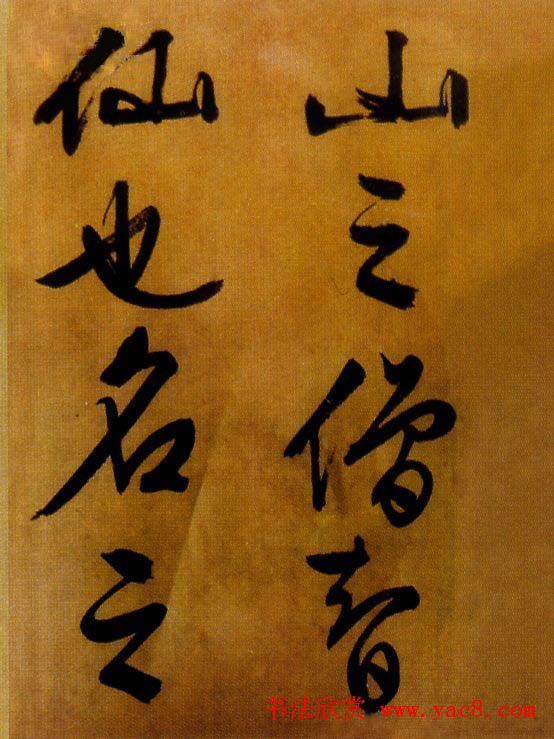 山之僧智
仙也名之
书法欣赏 www.yac8.com